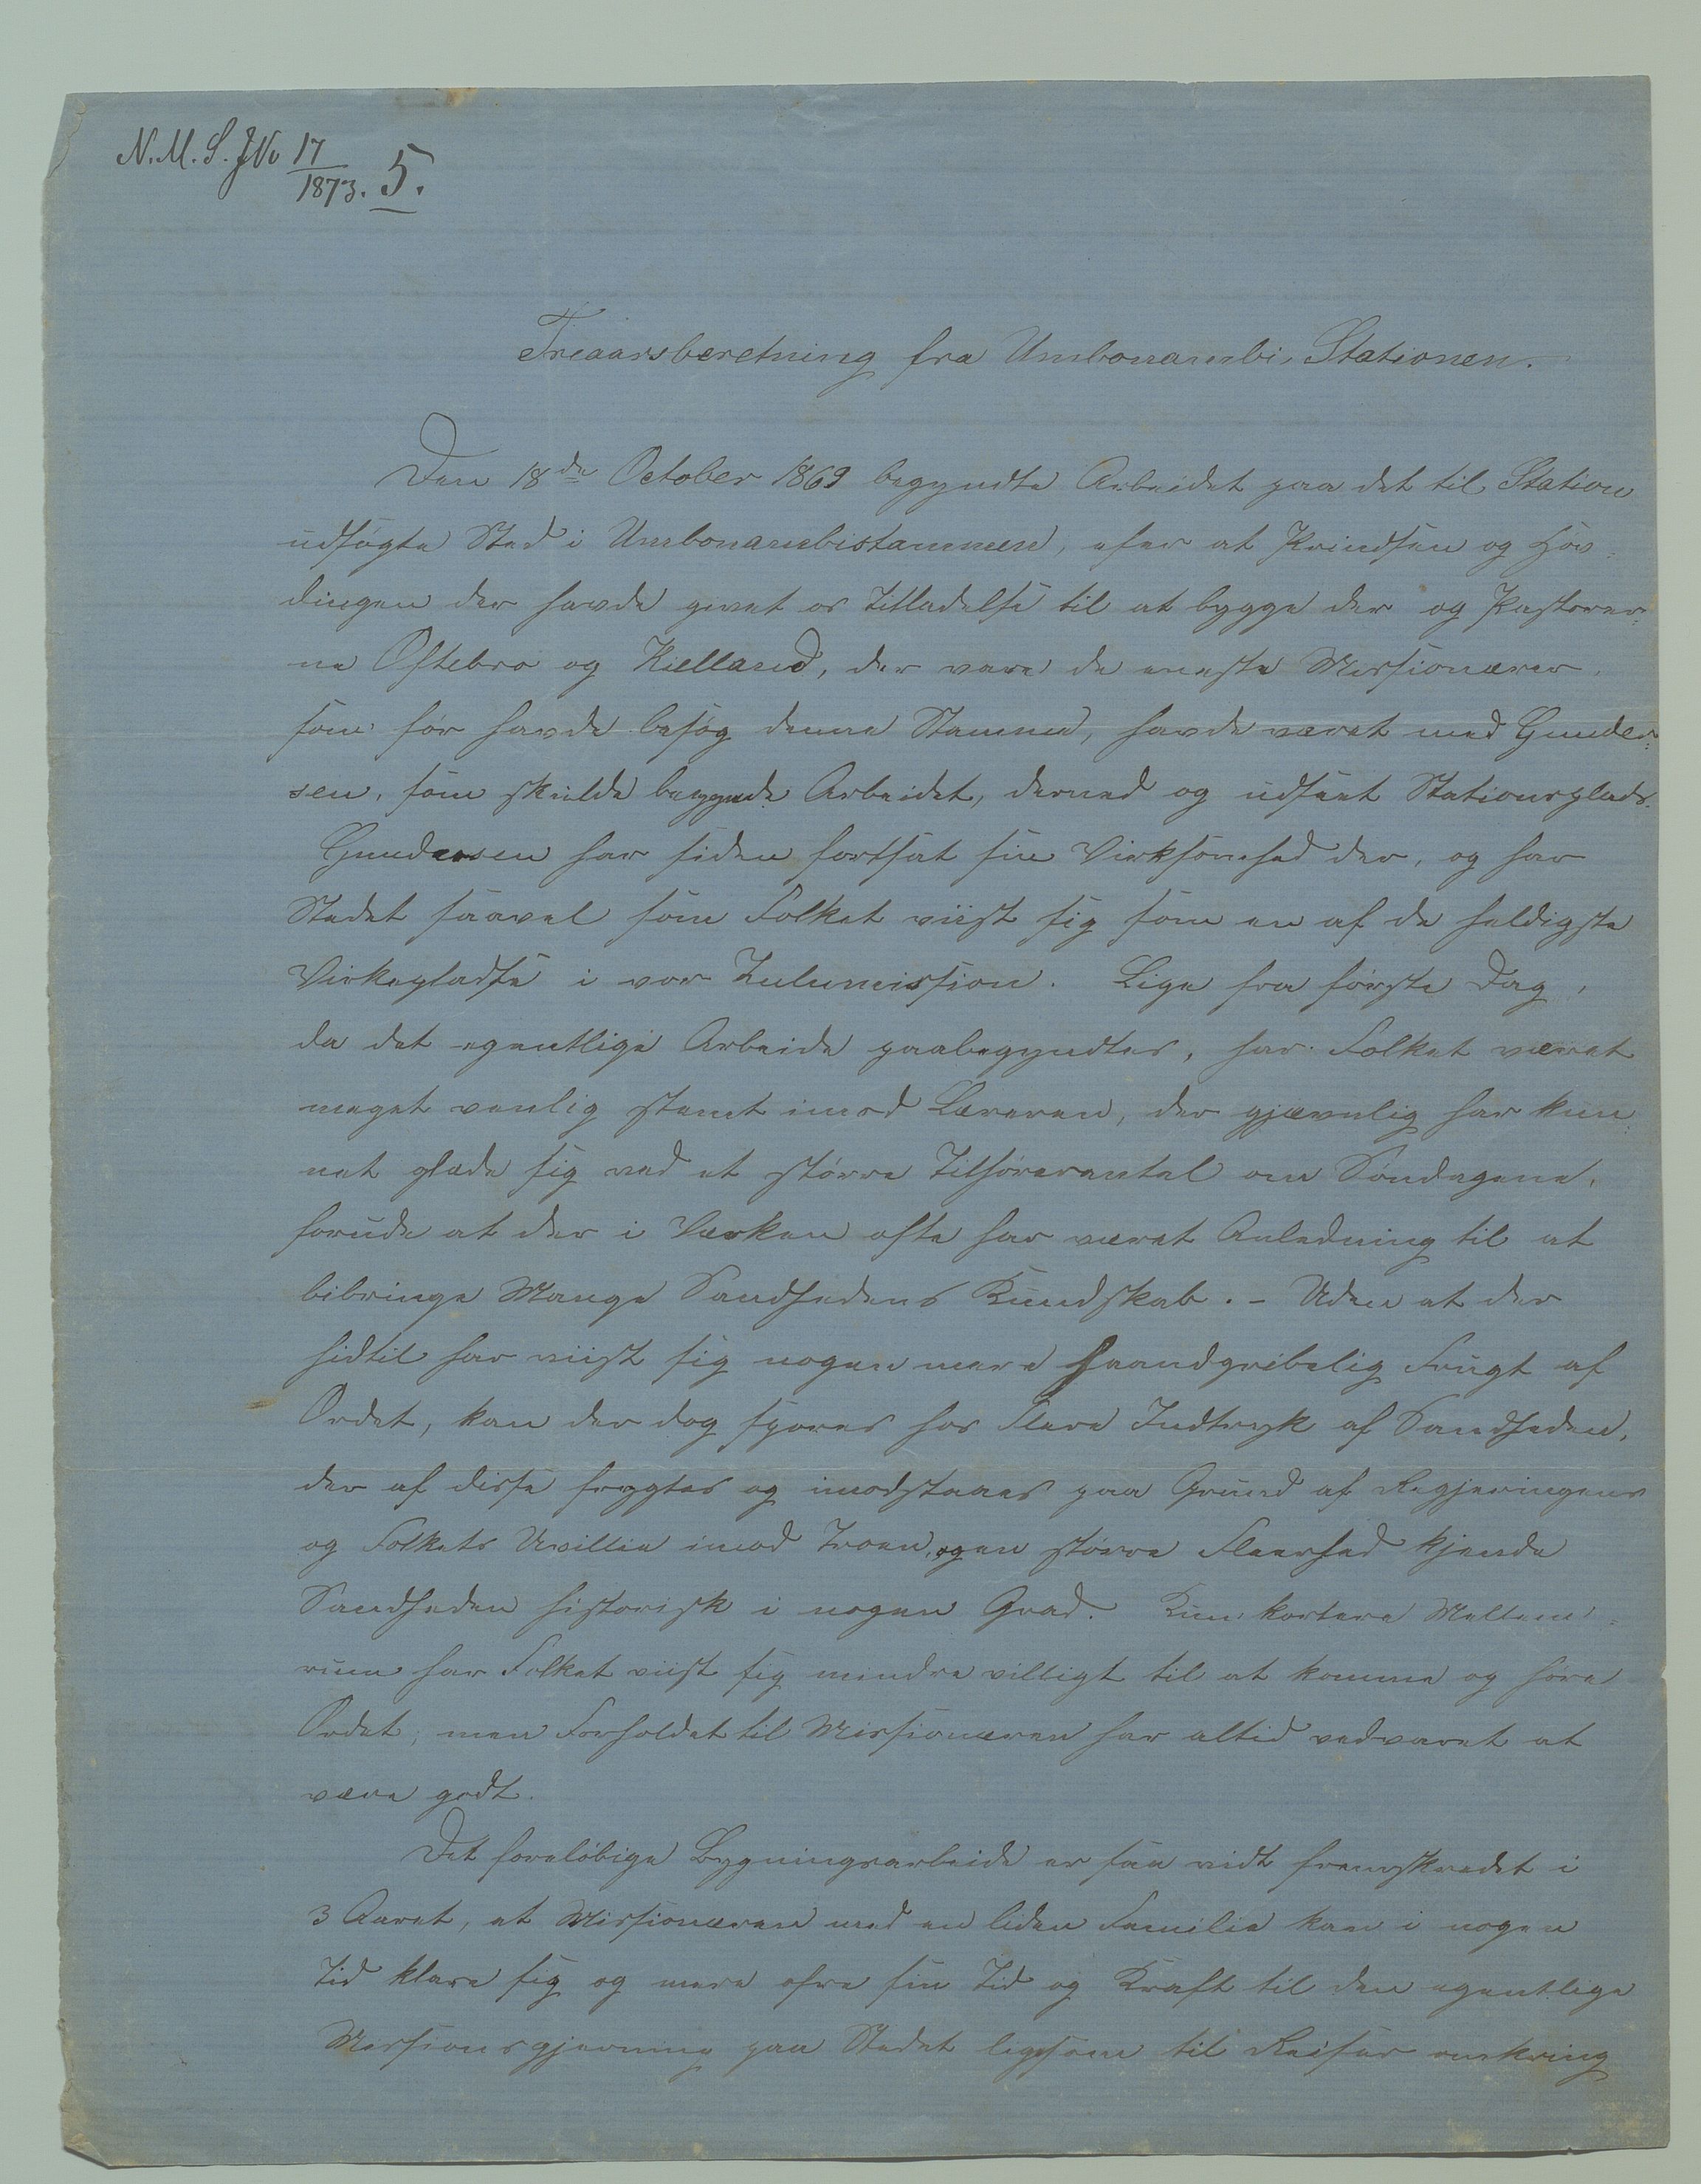 N. M. S. JNo 17/1873. 5.
Treaarsberetning fra Umbonambi Stationen.
Den 18de October 1869 begyndte Arbeidet paa det til Station
udsøgte Sted i Umbonambistammen, efter at Prindsen og Høv:
dingen der havde givet os Tilladelse til at bygge der og Pastorer:
ne Oftebro og Kielland, der vare de eneste Missionærer,
som før havde besøg denne Stamme, havde været med Gunder:
sen, som skulde begynde Arbeidet, derned og udseet Stationsplads.
Gundersen har siden fortsat sin Virksomhed der, og har
Stedet saavel som Folket viist sig som en af de heldigste
Virkepladse i vor Zulumission. Lige fra første Dag,
da det egentlige Arbeide paabegyndtes, har Folket været
meget venlig stemt imod Læreren, der gjævnlig har kun:
net glæde sig ved et større Tilhørerantal om Søndagene,
forude at der i Værken ofte har været Anledning til at
bibringe Mange Sandhedens Kundskab. - Uden at der
hidtil har viist sig nogen mere haandgribelig Frugt af
Ordet, kan der dog spores hos Flere Indtryk af Sandheden,
der af disse frygtes og imodstaaes paa Grund af Regjeringens
og Folkets Uvillie imod Troen, og en større Fleerhed kjende
Sandheden historisk i nogen Grad. Kun kortere Mellem:
rum har Folket viist sig mindre villigt til at komme og høre
Ordet; men Forholdet til Missionæren har altid vedvaret at
være godt.
Det foreløbige Bygningsarbeide er saa vidt fremskredet i
3 Aaret, at Missionæren med en liden Familie kan i nogen
Tid klare sig og mere ofre sin Tid og Kraft til den egentlige
Missionsgjerning paa Stedet ligesom til Reiser omkring